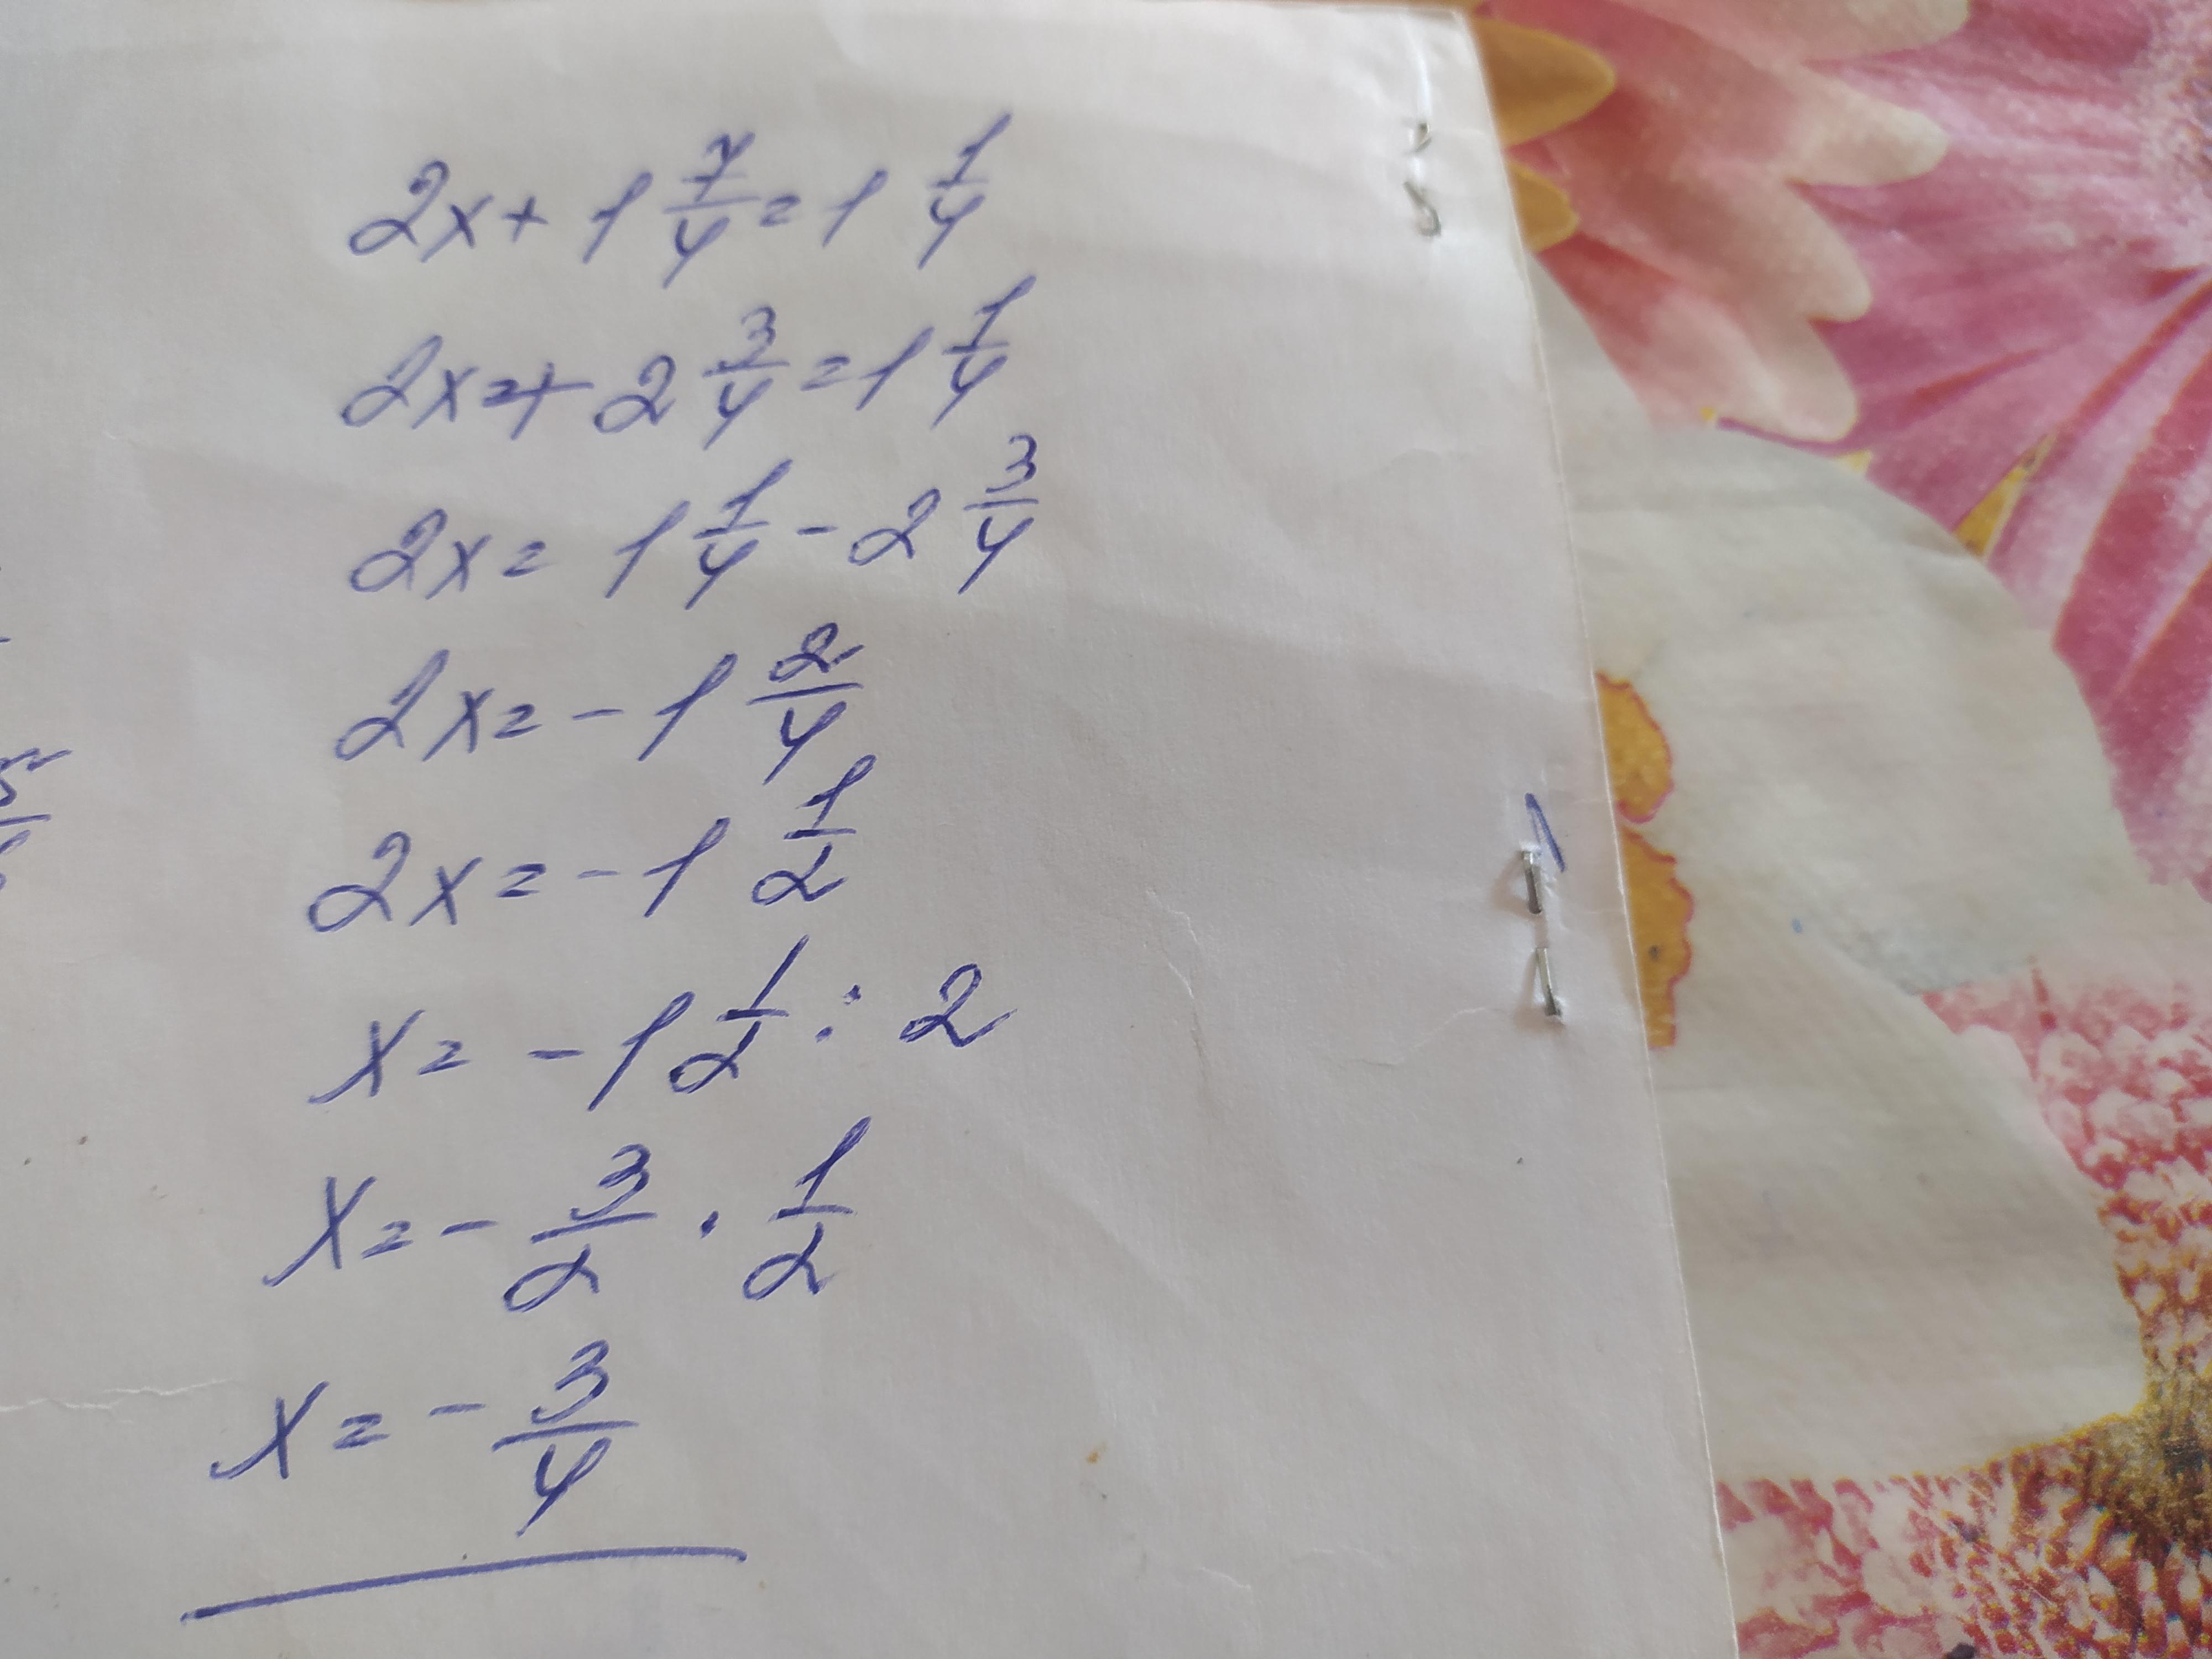 2x + 1 7/4 = 1 1/4
2x =+ 2 3/4 = 1 1/4
2x = 1 1/4 - 2 3/4
2x = - 1 2/4
2x = - 1 1/2
x = - 1 1/2 : 2
x = - 3/2 · 1/2
x = - 3/4
5